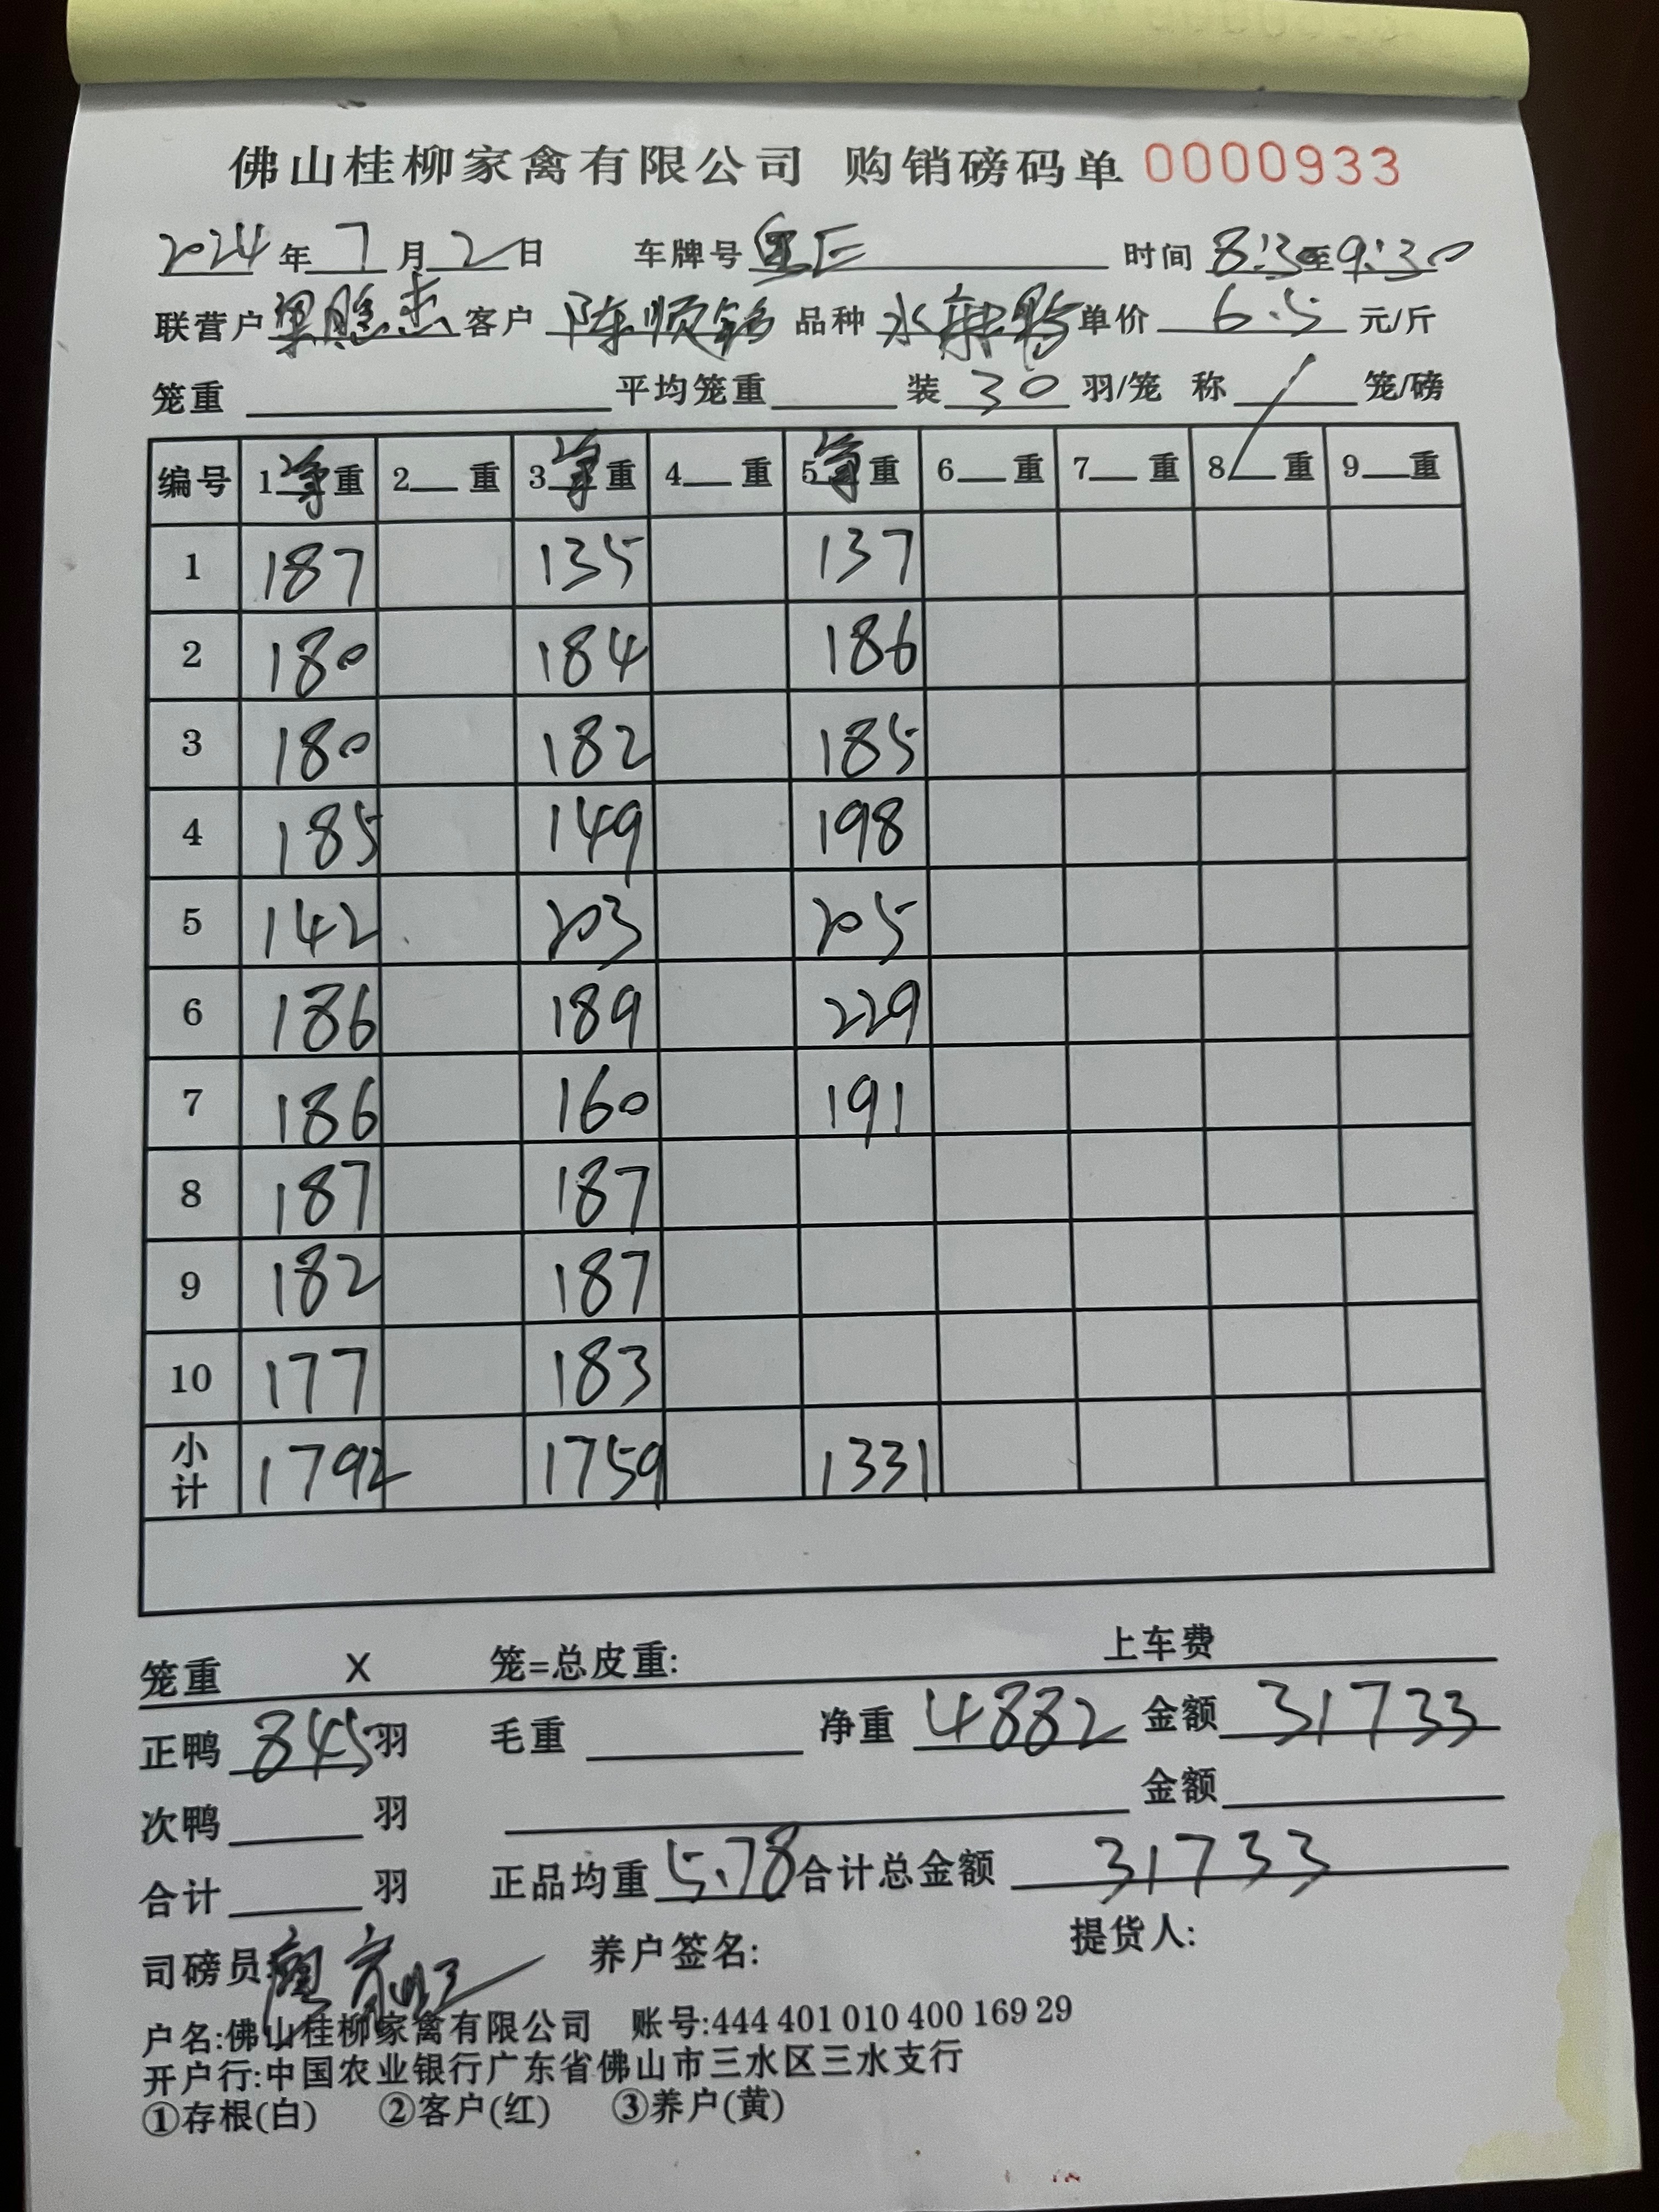 佛山桂柳家禽有限公司 购销磅码单 0000933
2024 年 7 月 2 日 车牌号 时间 8:30 至 9:30
联营户 梁胜杰 客户 陈顺铭 品种 水麻鸭 单价 6.5 元/斤
笼重 平均笼重 装 30 羽/笼 称 / 笼/磅
编号 1 净 重 2 重 3 净 重 4 重 5 净 重 6 重 7 重 8 重 9 重
1 187 135 137
2 180 184 186
3 180 182 185
4 185 149 198
5 142 203 205
6 186 189 229
7 186 160 191
8 187 187
9 182 187
10 177 183
小计 1792 1759 1331
笼重 X 笼=总皮重: 上车费
正鸭 845 羽 毛重 净重 4882 金额 31733
次鸭 羽 金额
合计 羽 正品均重 5.78 合计总金额 31733
司磅员: 养户签名: 提货人:
户名:佛山桂柳家禽有限公司 账号:444 401 010 400 169 29
开户行:中国农业银行广东省佛山市三水区三水支行
①存根(白) ②客户(红) ③养户(黄)